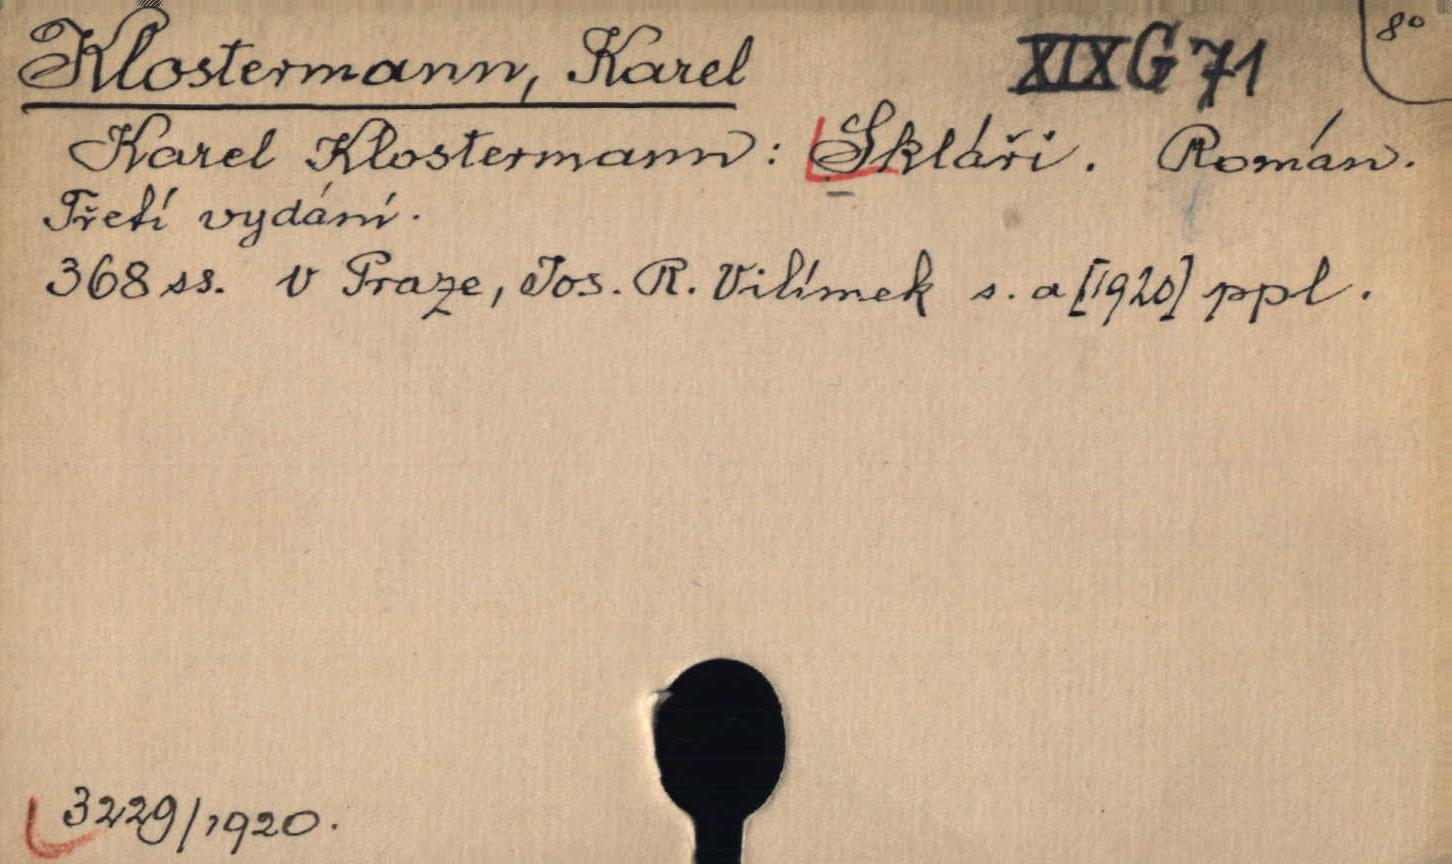 Klostermann, Karel XIX G 71 8°
Karel Klostermann: Skláři. Román.
Třetí vydání.
368 ss. V Praze, Jos. R. Vilímek s. a [1920] ppl.
3229/1920.